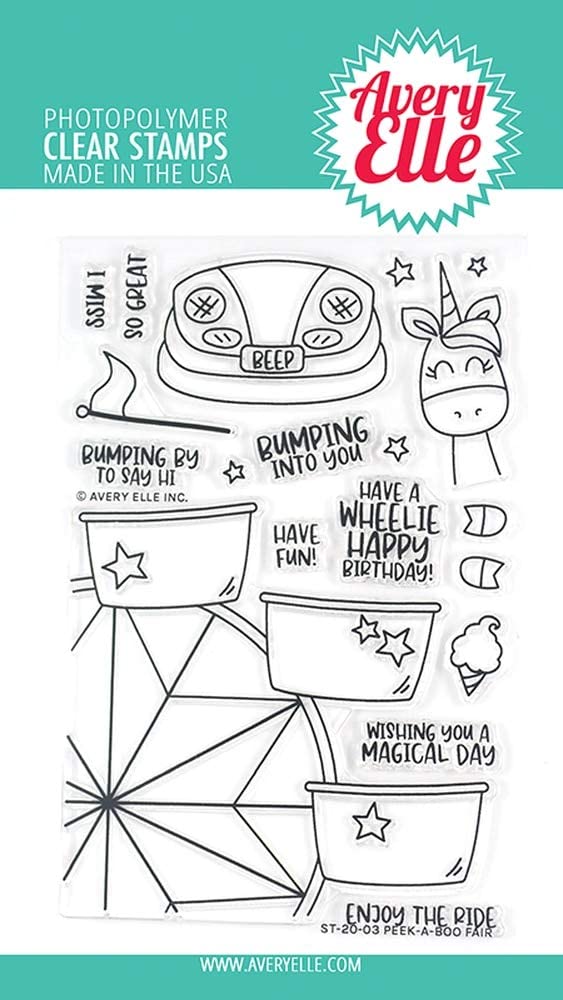 PHOTOPOLYMER
CLEAR STAMPS
MADE IN THE USA
Avery
Elle
I MISS
SO GREAT
BEEP
BUMPING BY
TO SAY HI
© AVERY ELLE INC.
BUMPING
INTO YOU
HAVE A
WHEELIE
HAPPY
BIRTHDAY!
HAVE
FUN!
WISHING YOU A
MAGICAL DAY
ENJOY THE RIDE
ST-20-03 PEEK-A-BOO FAIR
WWW.AVERYELLE.COM